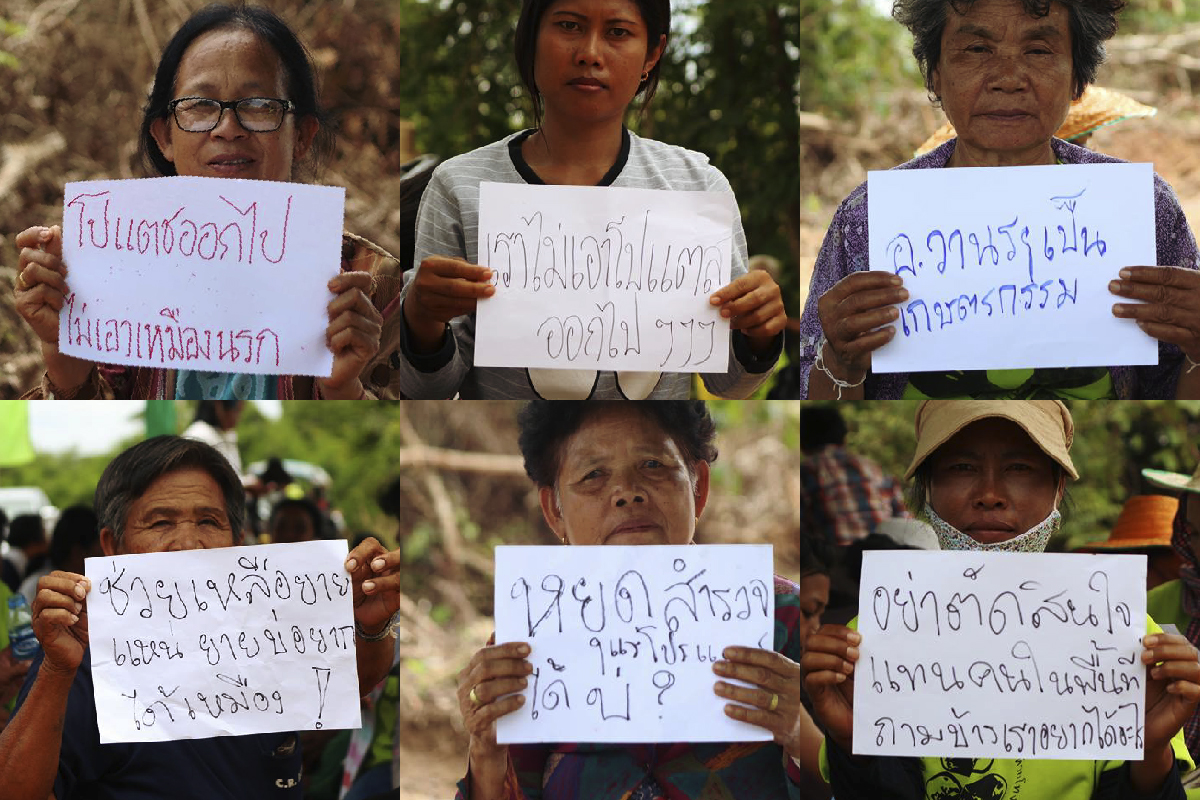 โปแตชออกไป
ไม่เอาเหมืองนรก
เราไม่เอาโปแตส
ออกไป ๆๆๆ
อ.วานรฯ เป็น
เกษตรกรรม
ช่วยเหลือยาย
แหน่ ยายบ่อยาก
ได้เหมือง !
หยุด สำรวจ
ได้ บ่ ?
อย่าตัดสินใจ
แทนคนในพื้นที่
ถามข้าวเราอยากได้
C.R.